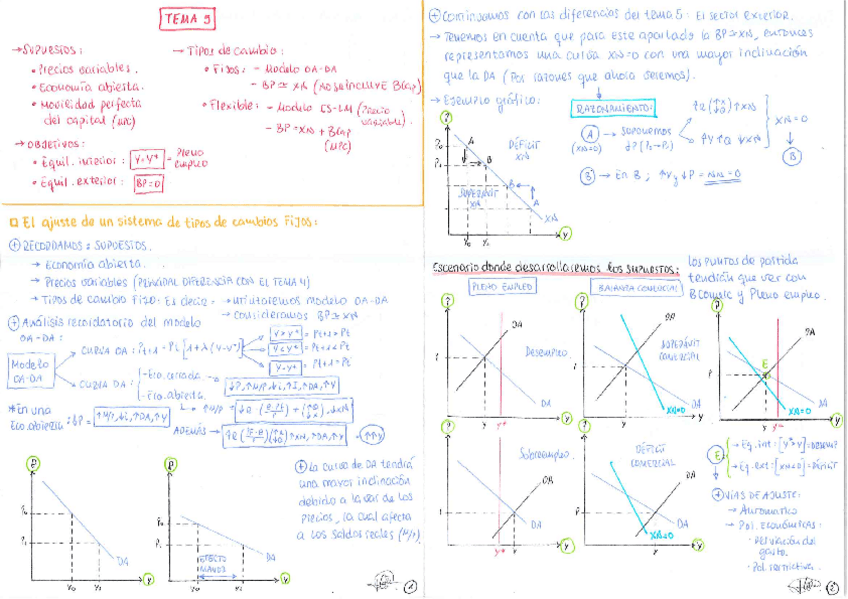 TEMA 5
→ SUPUESTOS:
• Precios variables.
• Economía abierta.
• Movilidad perfecta
del capital (MPC)
→ OBJETIVOS:
• Equil. interior: Y=Y* = Pleno
empleo
• Equil. exterior: BP=0
→ Tipos de cambio:
• Fijos: - Modelo OA-DA
- BP ≃ XN (NO SE INCLUYE BCAP)
• Flexible: - Modelo IS-LM (Precio
variable).
- BP = XN + BCAP
(MPC)
El ajuste de un sistema de tipos de cambios FIJOS:
RECORDAMOS: SUPUESTOS.
→ Economía abierta.
→ Precios variables (PRINCIPAL DIFERENCIA CON EL TEMA 4)
→ Tipos de cambio Fijo: Es decir: → utilizaremos modelo OA-DA
→ consideramos BP ≃ XN
Análisis recordatorio del modelo
OA-DA:
Modelo
OA-DA
CURVA OA: Pt+1 = Pt [1+λ(Y-Y*)]
Y>Y* = Pt+1 > Pt
Y<Y* = Pt+1 < Pt
Y=Y* = Pt+1 = Pt
CURVA DA:
- Eco. cerrada
- Eco. abierta.
↓P, ↑M/P, ↓i, ↑I, ↑DA, ↑Y
* En una
Eco. abierta: ↓P =
ADEMÁS →
= ↑↑Y
P
P₀
P₁
DA
Y₀
Y₁
Y
P
P₀
P₁
EFECTO
DA
Y₀
Y₁
Y
La curva de DA tendrá
una mayor inclinación
debido a la var de los
Precios, la cual afecta
a los saldos reales (M/P).
1
Continuamos con las diferencias del tema 5: El sector exterior.
→ Tenemos en cuenta que para este apartado la BP ≃ XN, entonces
representamos una curva XN=0 con una mayor inclinación
que la DA (Por razones que ahora veremos).
→ Ejemplo gráfico:
RAZONAMIENTO:
A → Suponemos
(XN=0)
↓P (P₀→P₁)
XN=0
B
B → En B; ↑Y y ↓P = XN=0
P
P₀
P₁
A
B
DÉFICIT
XN
SUPERÁVIT
XN
B
A
XN
Y₀
Y₁
Y
Escenario donde desarrollaremos los supuestos:
PLENO EMPLEO
BALANZA COMERCIAL
Los puntos de partida
tendrán que ver con
BComerc y Pleno empleo.
P
OA
Desempleo.
DA
Y
Y*
Y
P
OA
SUPERÁVIT
COMERCIAL
DA
XN=0
Y
Y
P
OA
E
P
XN=0
DA
Y
Y*
Y
P
Sobreempleo.
OA
DA
Y*
Y
Y
P
DÉFICIT
COMERCIAL
OA
P
DA
XN=0
Y
Y
E
VÍAS DE AJUSTE:
→ Automático
→ Pol. económicas:
• Desviación del
gasto.
• Pol. restrictiva.
2